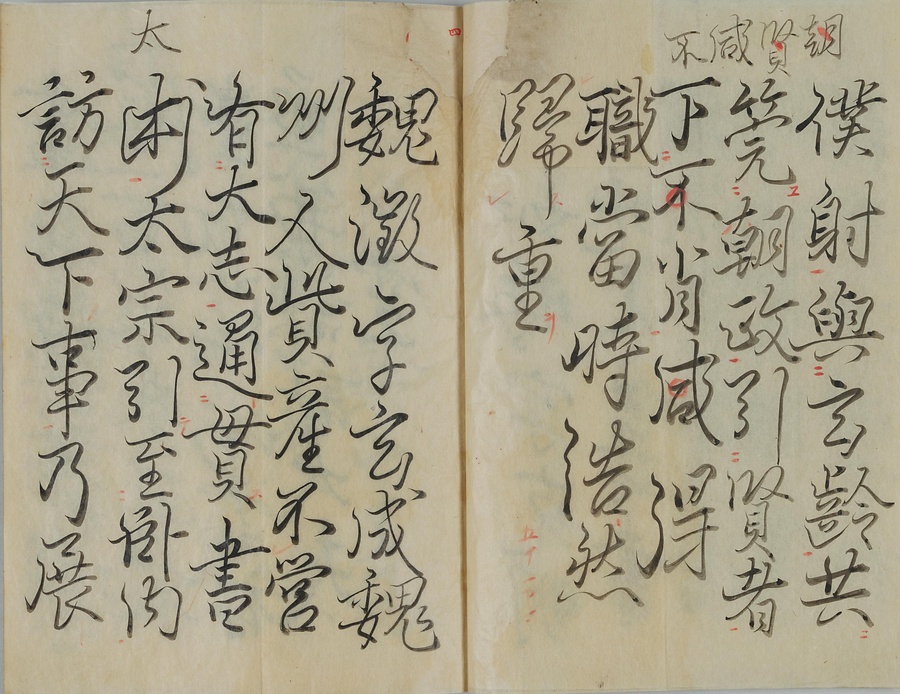 朝賢咸不
僕射與玄齡共
筦朝政引賢者
下不肖咸得
職當時浩然
歸重
太
魏徵字玄成魏
州人貲產不營
有大志通貫書
術太宗引至卧内
訪天下事乃展